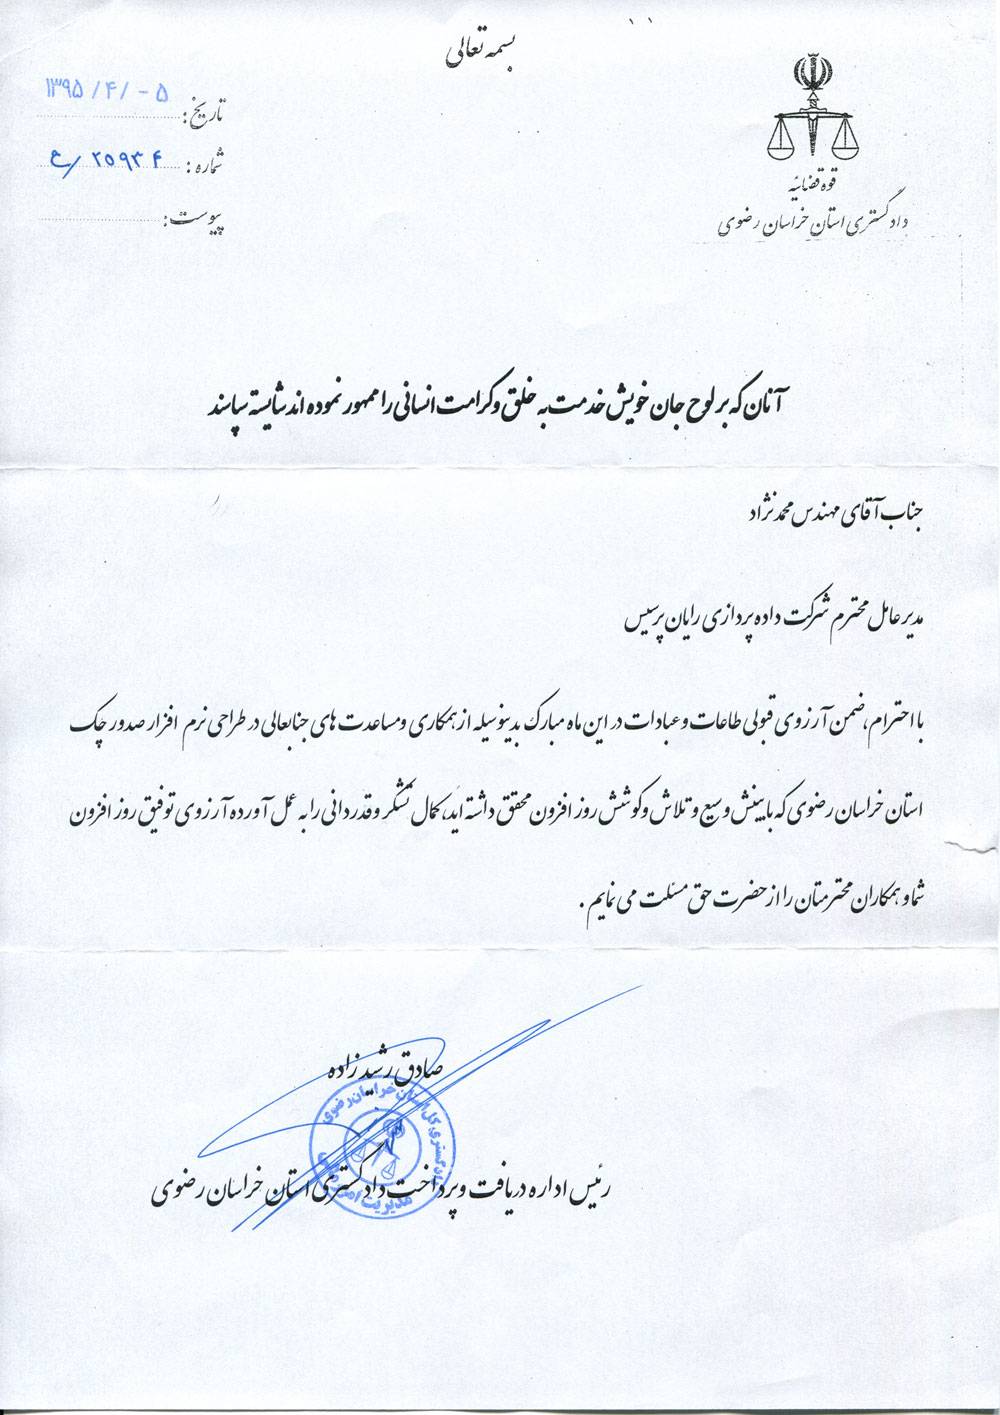 بسمه تعالی
قوه قضائیه
دادگستری استان خراسان رضوی
تاریخ: ۱۳۹۵/۴/-۵
شماره: ۲۵۹۳۴/ع
پیوست:
آنان که بر لوح جان خویش خدمت به خلق و کرامت انسانی را ممهور نموده اند شایسته سپاسند
جناب آقای مهندس محمدنژاد
مدیر عامل محترم شرکت داده پردازی رایان پرسیس
با احترام، ضمن آرزوی قبولی طاعات و عبادات در این ماه مبارک بدینوسیله از همکاری و مساعدت های جنابعالی در طراحی نرم افزار صدور چک
استان خراسان رضوی که با بینش وسیع و تلاش و کوشش روز افزون محقق داشته اید، کمال تشکر و قدردانی را به عمل آورده آرزوی توفیق روز افزون
شما و همکاران محترمتان را از حضرت حق مسئلت می نمایم .
صادق رشیدزاده
رئیس اداره دریافت و پرداخت دادگستری استان خراسان رضوی
دادگستری کل استان خراسان رضوی
مدیریت امور